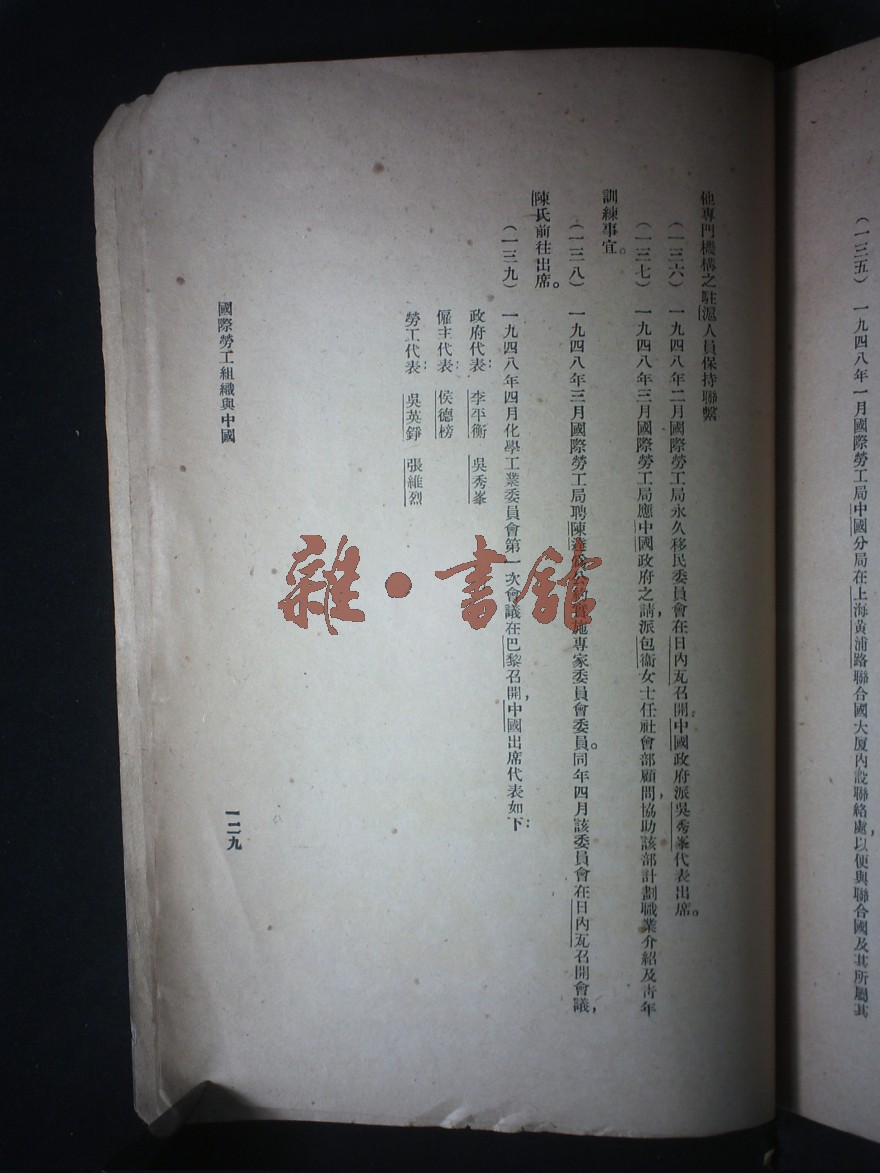 (一三五) 一九四八年一月國際勞工局中國分局在上海黃浦路聯合國大厦內設聯絡處,以便與聯合國及其所屬其
他專門機構之駐滬人員保持聯繫
(一三六) 一九四八年二月國際勞工局永久移民委員會在日內瓦召開。中國政府派吳秀峯代表出席。
(一三七) 一九四八年三月國際勞工局應中國政府之請,派包衞女士任社會部顧問,協助該部計劃職業介紹及青年
訓練事宜。
(一三八) 一九四八年三月國際勞工局聘陳 施專家委員會委員。同年四月該委員會在日內瓦召開會議,
陳氏前往出席。
(一三九) 一九四八年四月化學工業委員會第一次會議在巴黎召開,中國出席代表如下:
政府代表: 李平衡 吳秀峯
僱主代表: 侯德榜
勞工代表: 吳英錚 張維烈
國際勞工組織與中國
一二九
雜·書舘